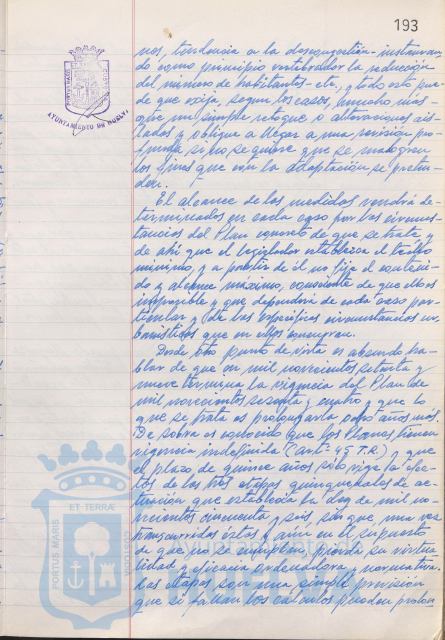 193
nos, tendencia a la descongestión - instauran-
do como principio vertebrador la reducción
del número de habitantes - etc, y todo esto pue-
de que exija, según los casos, mucho más
que un simple retoque o alteraciones ais-
ladas y obligue a llegar a una revisión pro-
funda si no se quiere que se malogren
los fines que con la adaptación se preten-
den.
El alcance de las medidas vendrá de-
terminados en cada caso por las circuns-
tancias del Plan concreto de que se trata y
de ahí que el legislador establezca el
mínimo, y a partir de él no fije el conteni-
do y alcance máximo, consciente de que ello es
imposible y que dependerá de cada caso par-
ticular y de las específicas circunstancias ur-
banísticas que en ellos concurran.
Desde otro punto de vista es absurdo ha-
blar de que en mil novecientos setenta y
nueve termina la vigencia del Plan de
mil novecientos sesenta y cuatro y que lo
que se trata es prolongarla otros años más.
De sobra es conocido que los Planes tienen
vigencia indefinida (Artº 45 T.R.) y que
el plazo de quince años sólo rige a efec-
tos de las tres etapas quinquenales de ac-
tuación que establecía la Ley de mil no-
vecientos cincuenta y seis, sin que una vez
transcurridas éstas y aún en el supuesto
de que no se cumplan, pierda su virtua-
lidad y eficacia ordenadora y normativa.
Las etapas son una simple previsión
que si fallan los cálculos pueden prolon
AYUNTAMIENTO DE HUELVA
PORTUS MARIS
ET TERRÆ
CUSTODIA